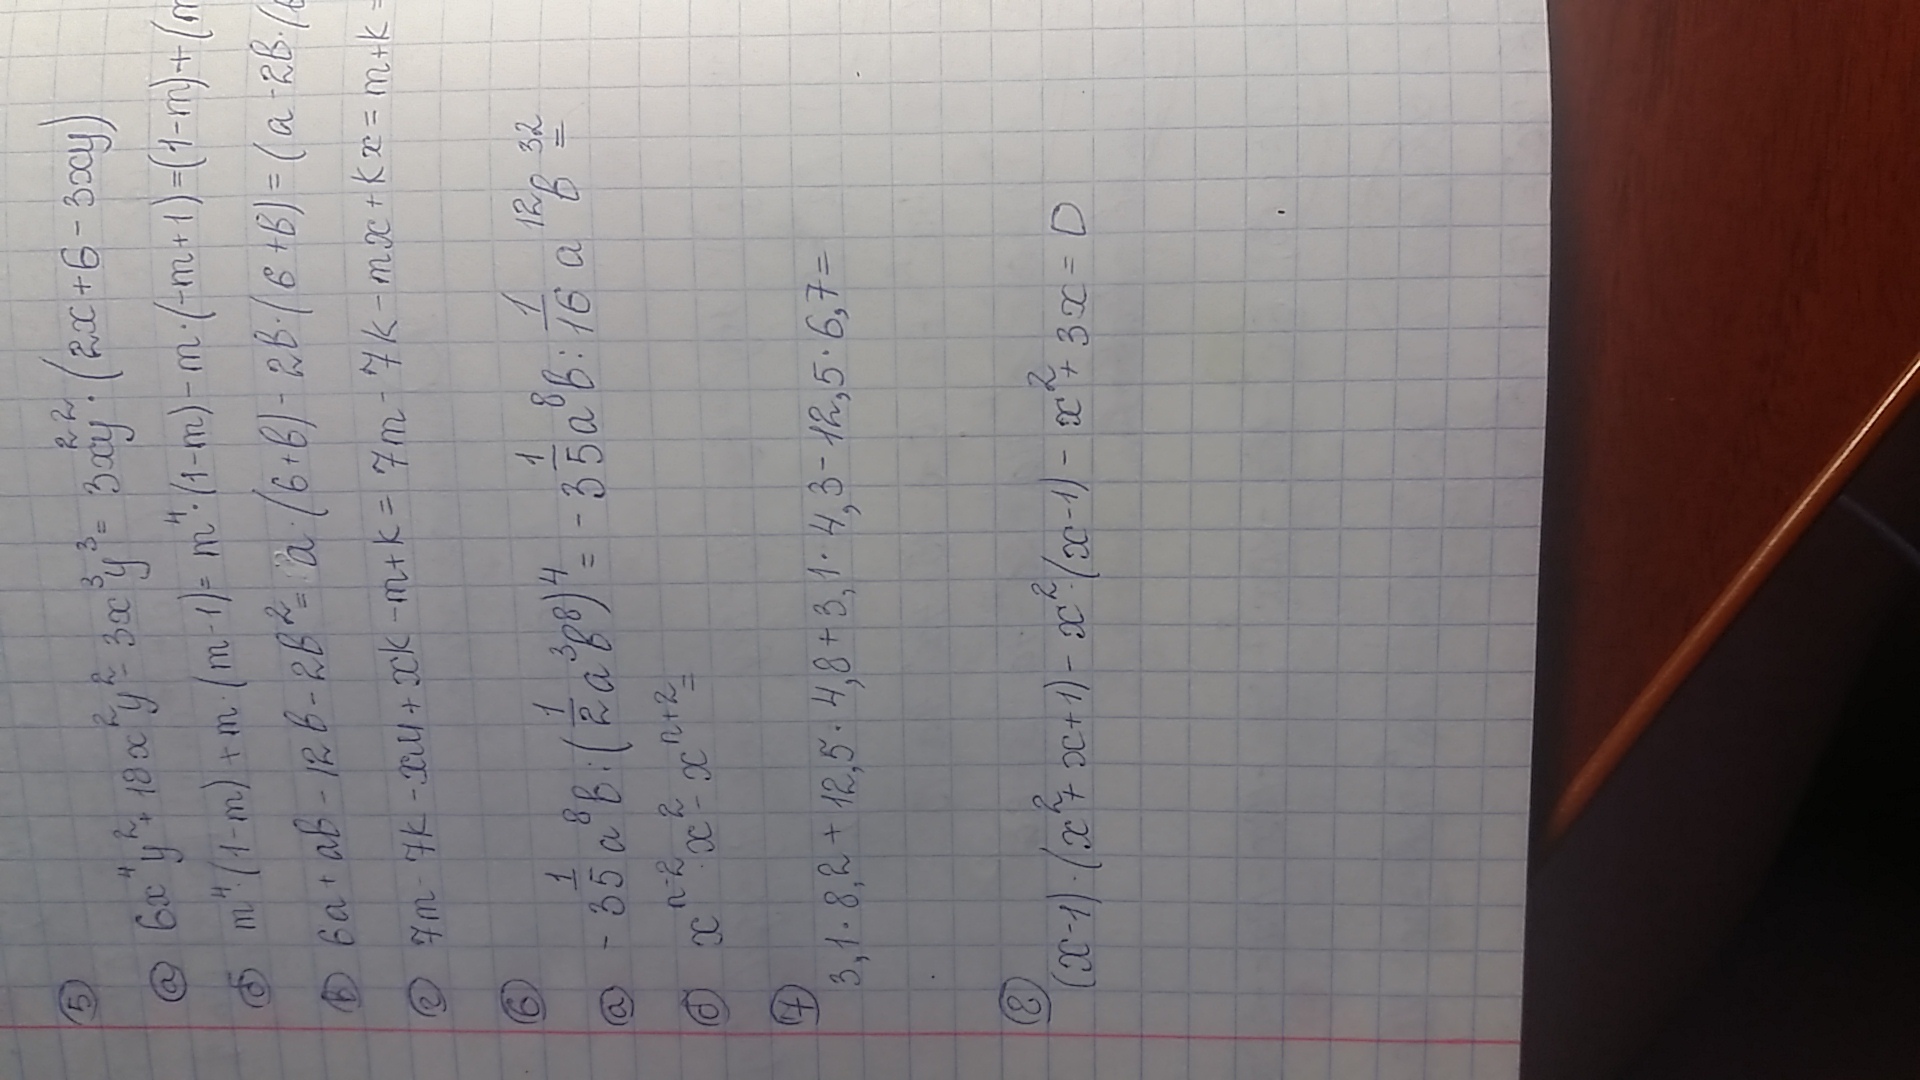 5
а 6x⁴y²+18x²y²-3x³y³=3x²y²·(2x+6-3xy)
б m⁴·(1-m)+m·(m-1)=m⁴·(1-m)-m·(-m+1)=(1-m)+(m
в 6a+aв-12в-2в²=a·(6+в)-2в·(6+в)=(a-2в·(
г 7m-7k-xm+xk-m+k=7m-7k-mx+kx=m+k=
6
а -3 1/5 a⁸в:(1/2 a³в⁸)⁴=-3 1/5 a⁸в:1/16 a¹²в³²=
б xⁿ⁻²·x²-xⁿ⁺²=
7
3,1·8,2+12,5·4,8+3,1·4,3-12,5·6,7=
8
(x-1)·(x²+x+1)-x²·(x-1)-x²+3x=0